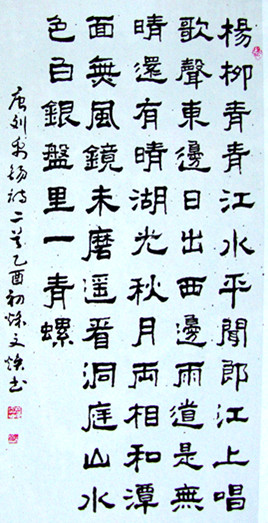 楊柳青青江水平聞郎江上唱
歌聲東邊日出西邊雨道是無
晴還有晴湖光秋月両相和潭
面無風鏡未磨遥看洞庭山水
色白銀盤里一青螺
唐刘禹锡诗二首乙酉初秋文焕书